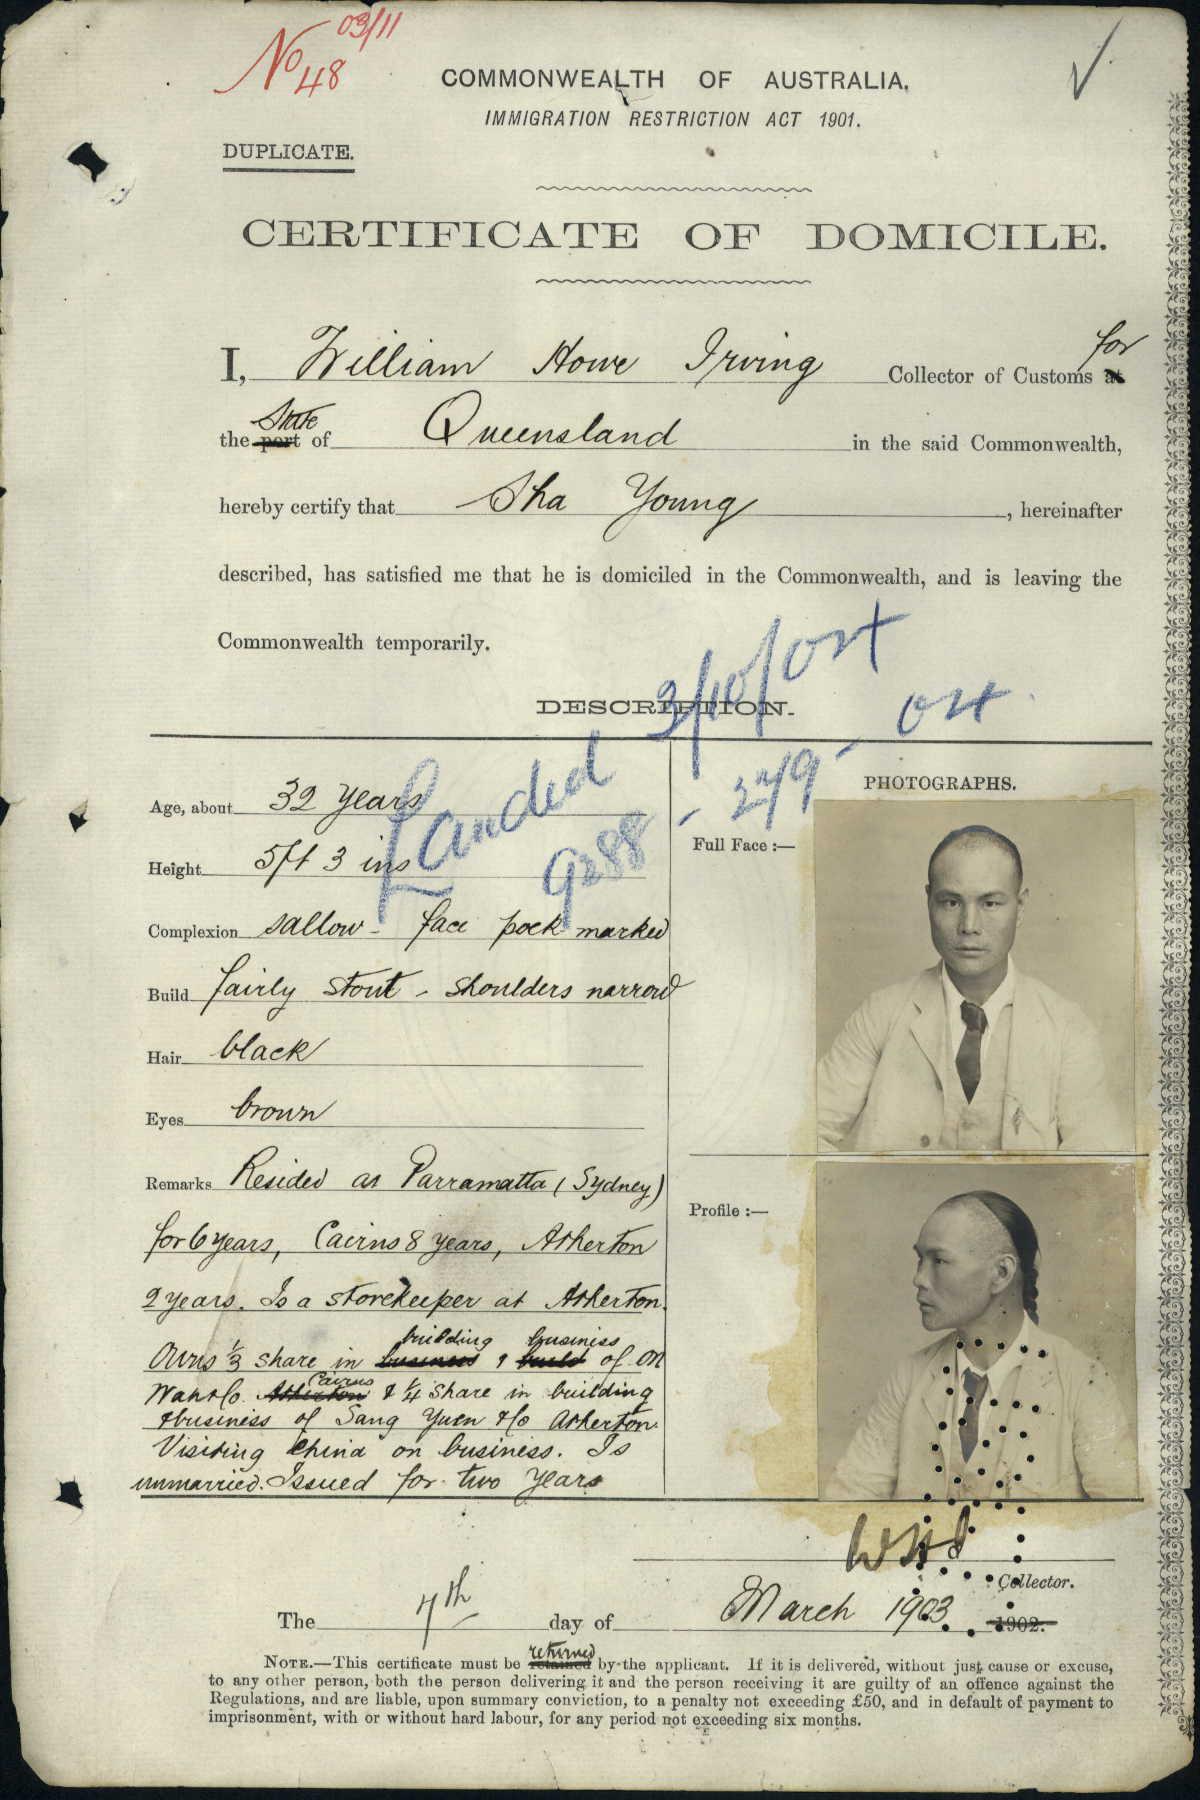 No 48
03/11
COMMONWEALTH OF AUSTRALIA.
IMMIGRATION RESTRICTION ACT 1901.
DUPLICATE.
CERTIFICATE OF DOMICILE.
I, William Howe Irving Collector of Customs at for
the port State of Queensland in the said Commonwealth,
hereby certify that Sha Young, hereinafter
described, has satisfied me that he is domiciled in the Commonwealth, and is leaving the
Commonwealth temporarily.
DESCRIPTION.
Landed 3/10/04
9288 - 27/9 - 04
Age, about 32 years
Height 5ft 3 ins
Complexion sallow - face pock marked
Build fairly stout - shoulders narrow
Hair black
Eyes brown
Remarks Resided at Parramatta (Sydney)
for 6 years, Cairns 8 years, Atherton
2 years. Is a storekeeper at Atherton.
building business
Owns 1/3 share in business & build of On
Wah & Co. Atherton Cairns & 1/4 share in building
& business of Sang Yuen & Co Atherton.
Visiting China on business. Is
unmarried. Issued for two years
PHOTOGRAPHS.
Full Face :—
Profile :—
WHI
Collector.
The 7th day of March 1903 1902.
returned
NOTE.—This certificate must be retained by the applicant. If it is delivered, without just cause or excuse,
to any other person, both the person delivering it and the person receiving it are guilty of an offence against the
Regulations, and are liable, upon summary conviction, to a penalty not exceeding £50, and in default of payment to
imprisonment, with or without hard labour, for any period not exceeding six months.